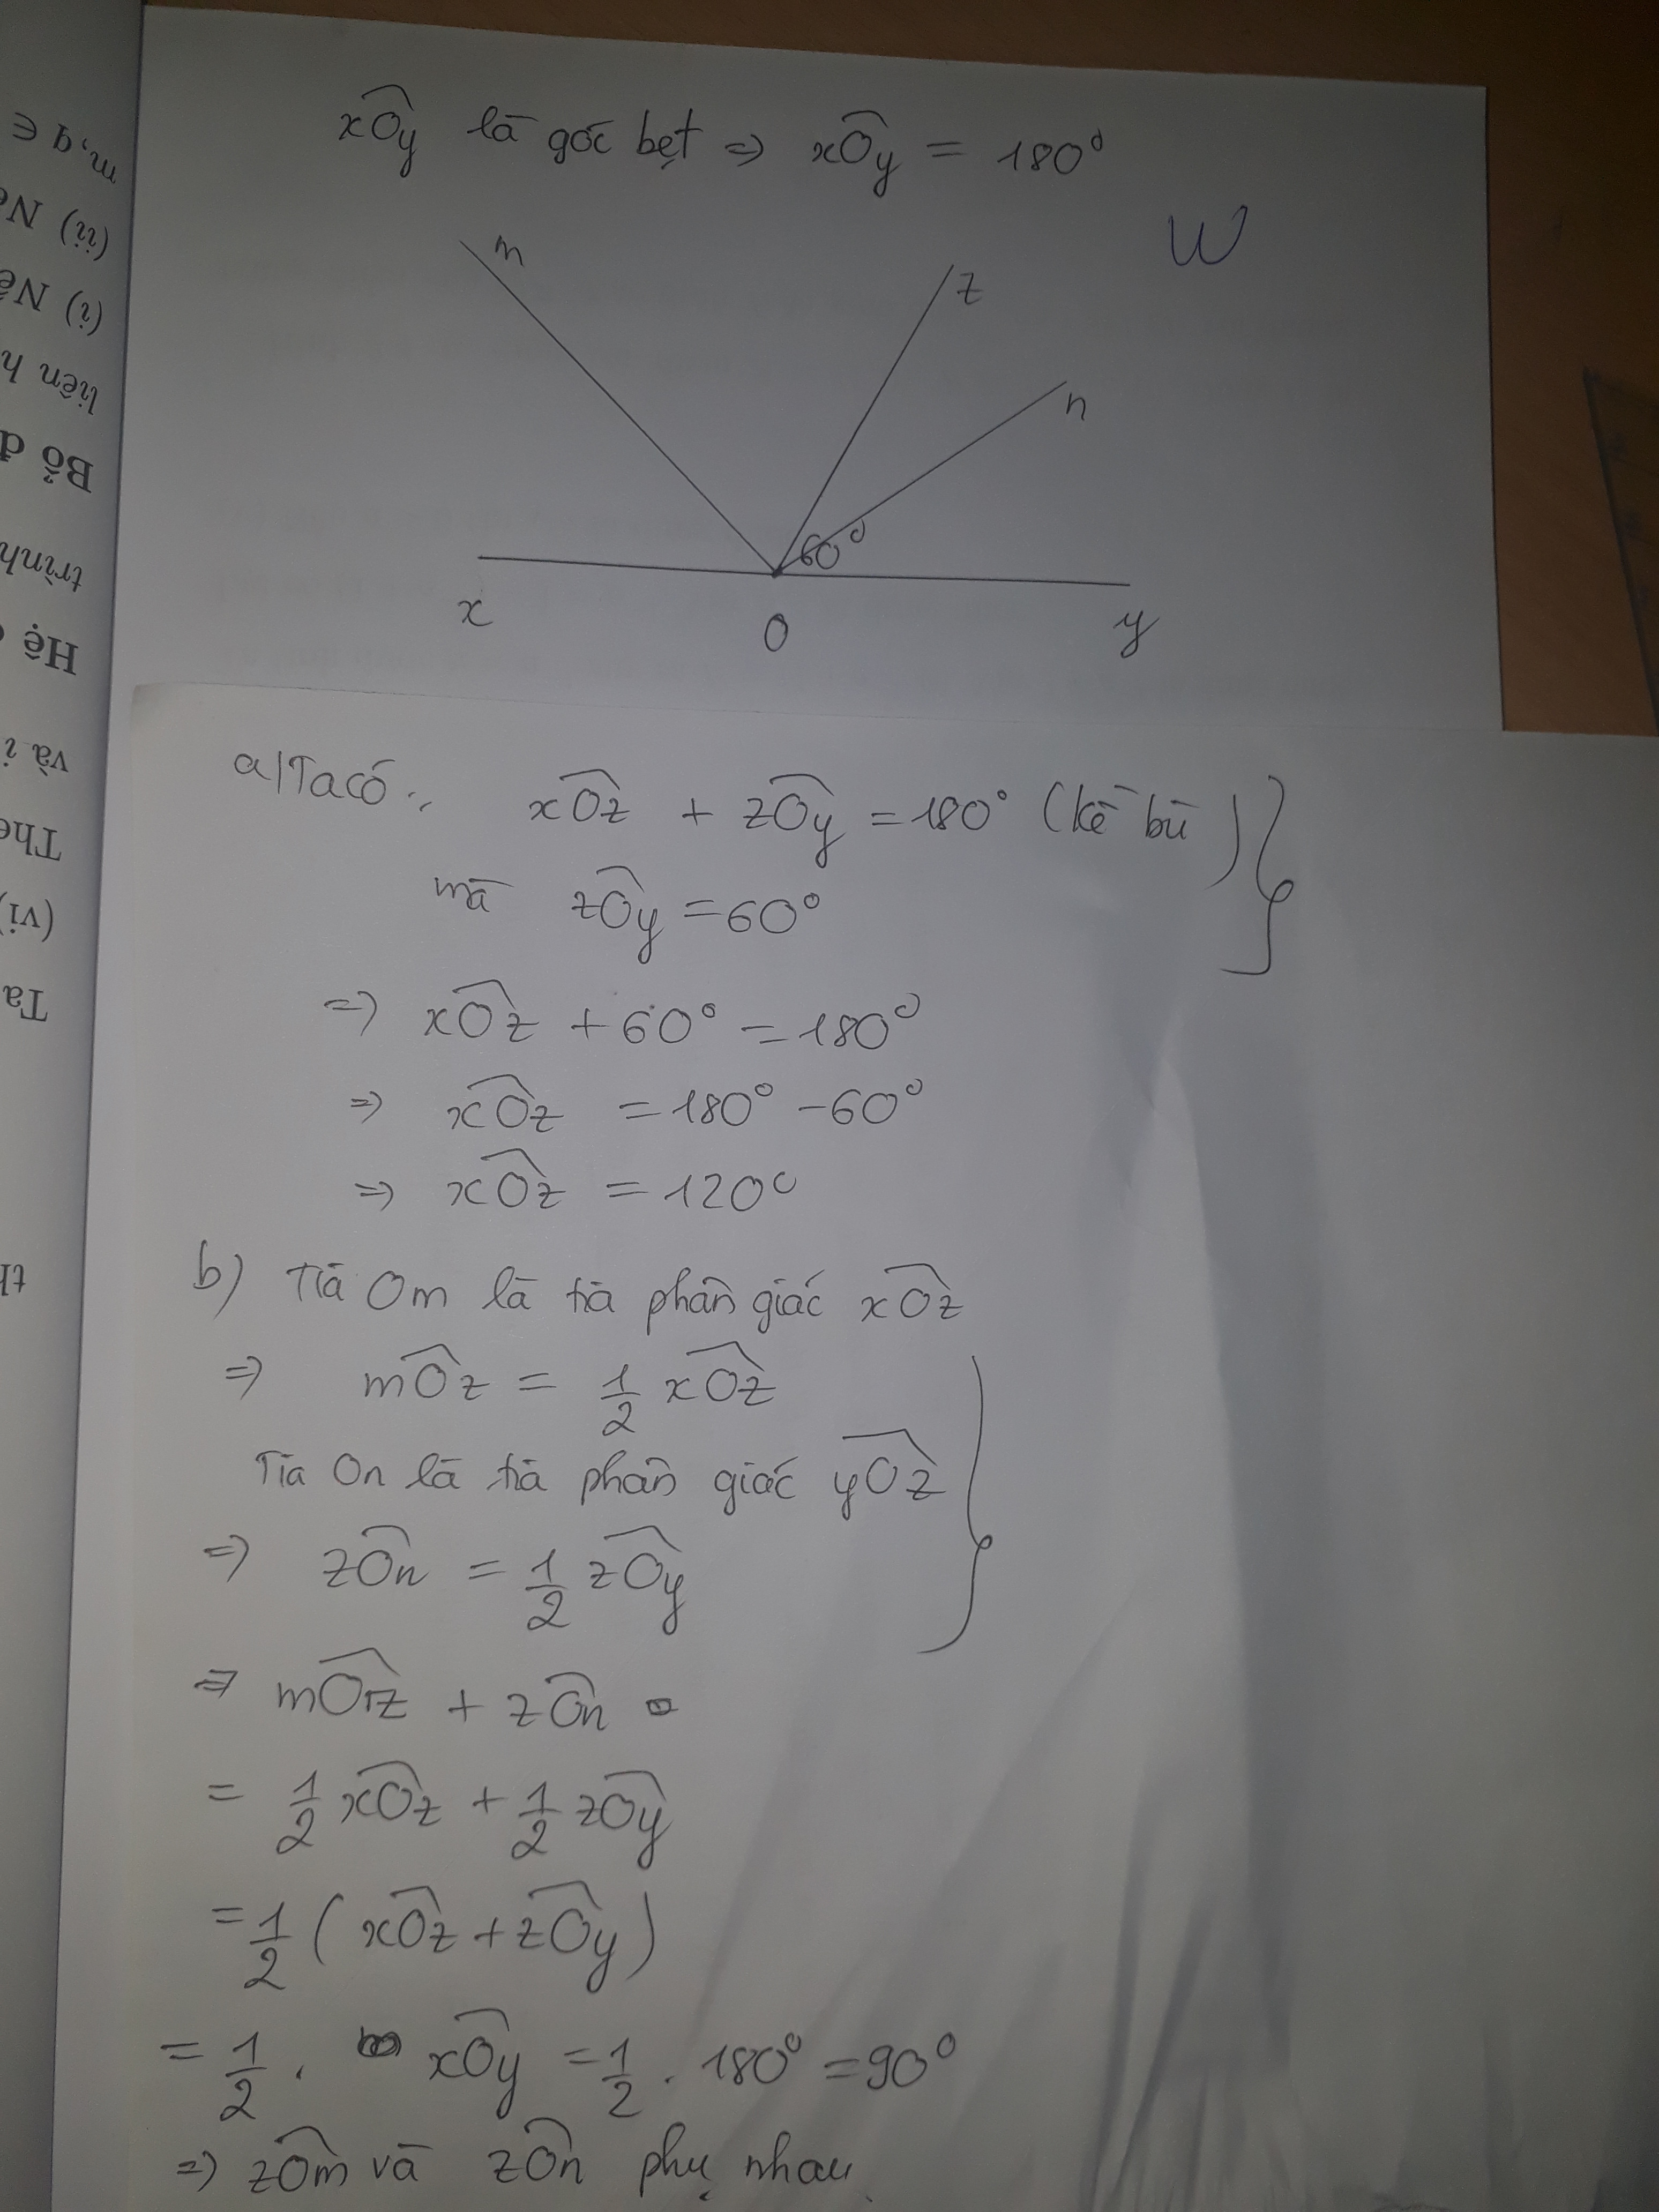 xOy là góc bẹt ⇒ xOy = 180°
W
m
z
n
60°
x
O
y
a/ Ta có: xOz + zOy = 180° (kề bù)
mà zOy = 60°
⇒ xOz + 60° = 180°
⇒ xOz = 180° - 60°
⇒ xOz = 120°
b) Tia Om là tia phân giác xOz
⇒ mOz = 1/2 xOz
Tia On là tia phân giác yOz
⇒ zOn = 1/2 zOy
⇒ mOz + zOn
= 1/2 xOz + 1/2 zOy
= 1/2 (xOz + zOy)
= 1/2 . xOy = 1/2 . 180° = 90°
⇒ zOm và zOn phụ nhau.
m, q ∈
(ii)
(i)
liên
Bổ
trình
Hệ
và
(vi)
Ta